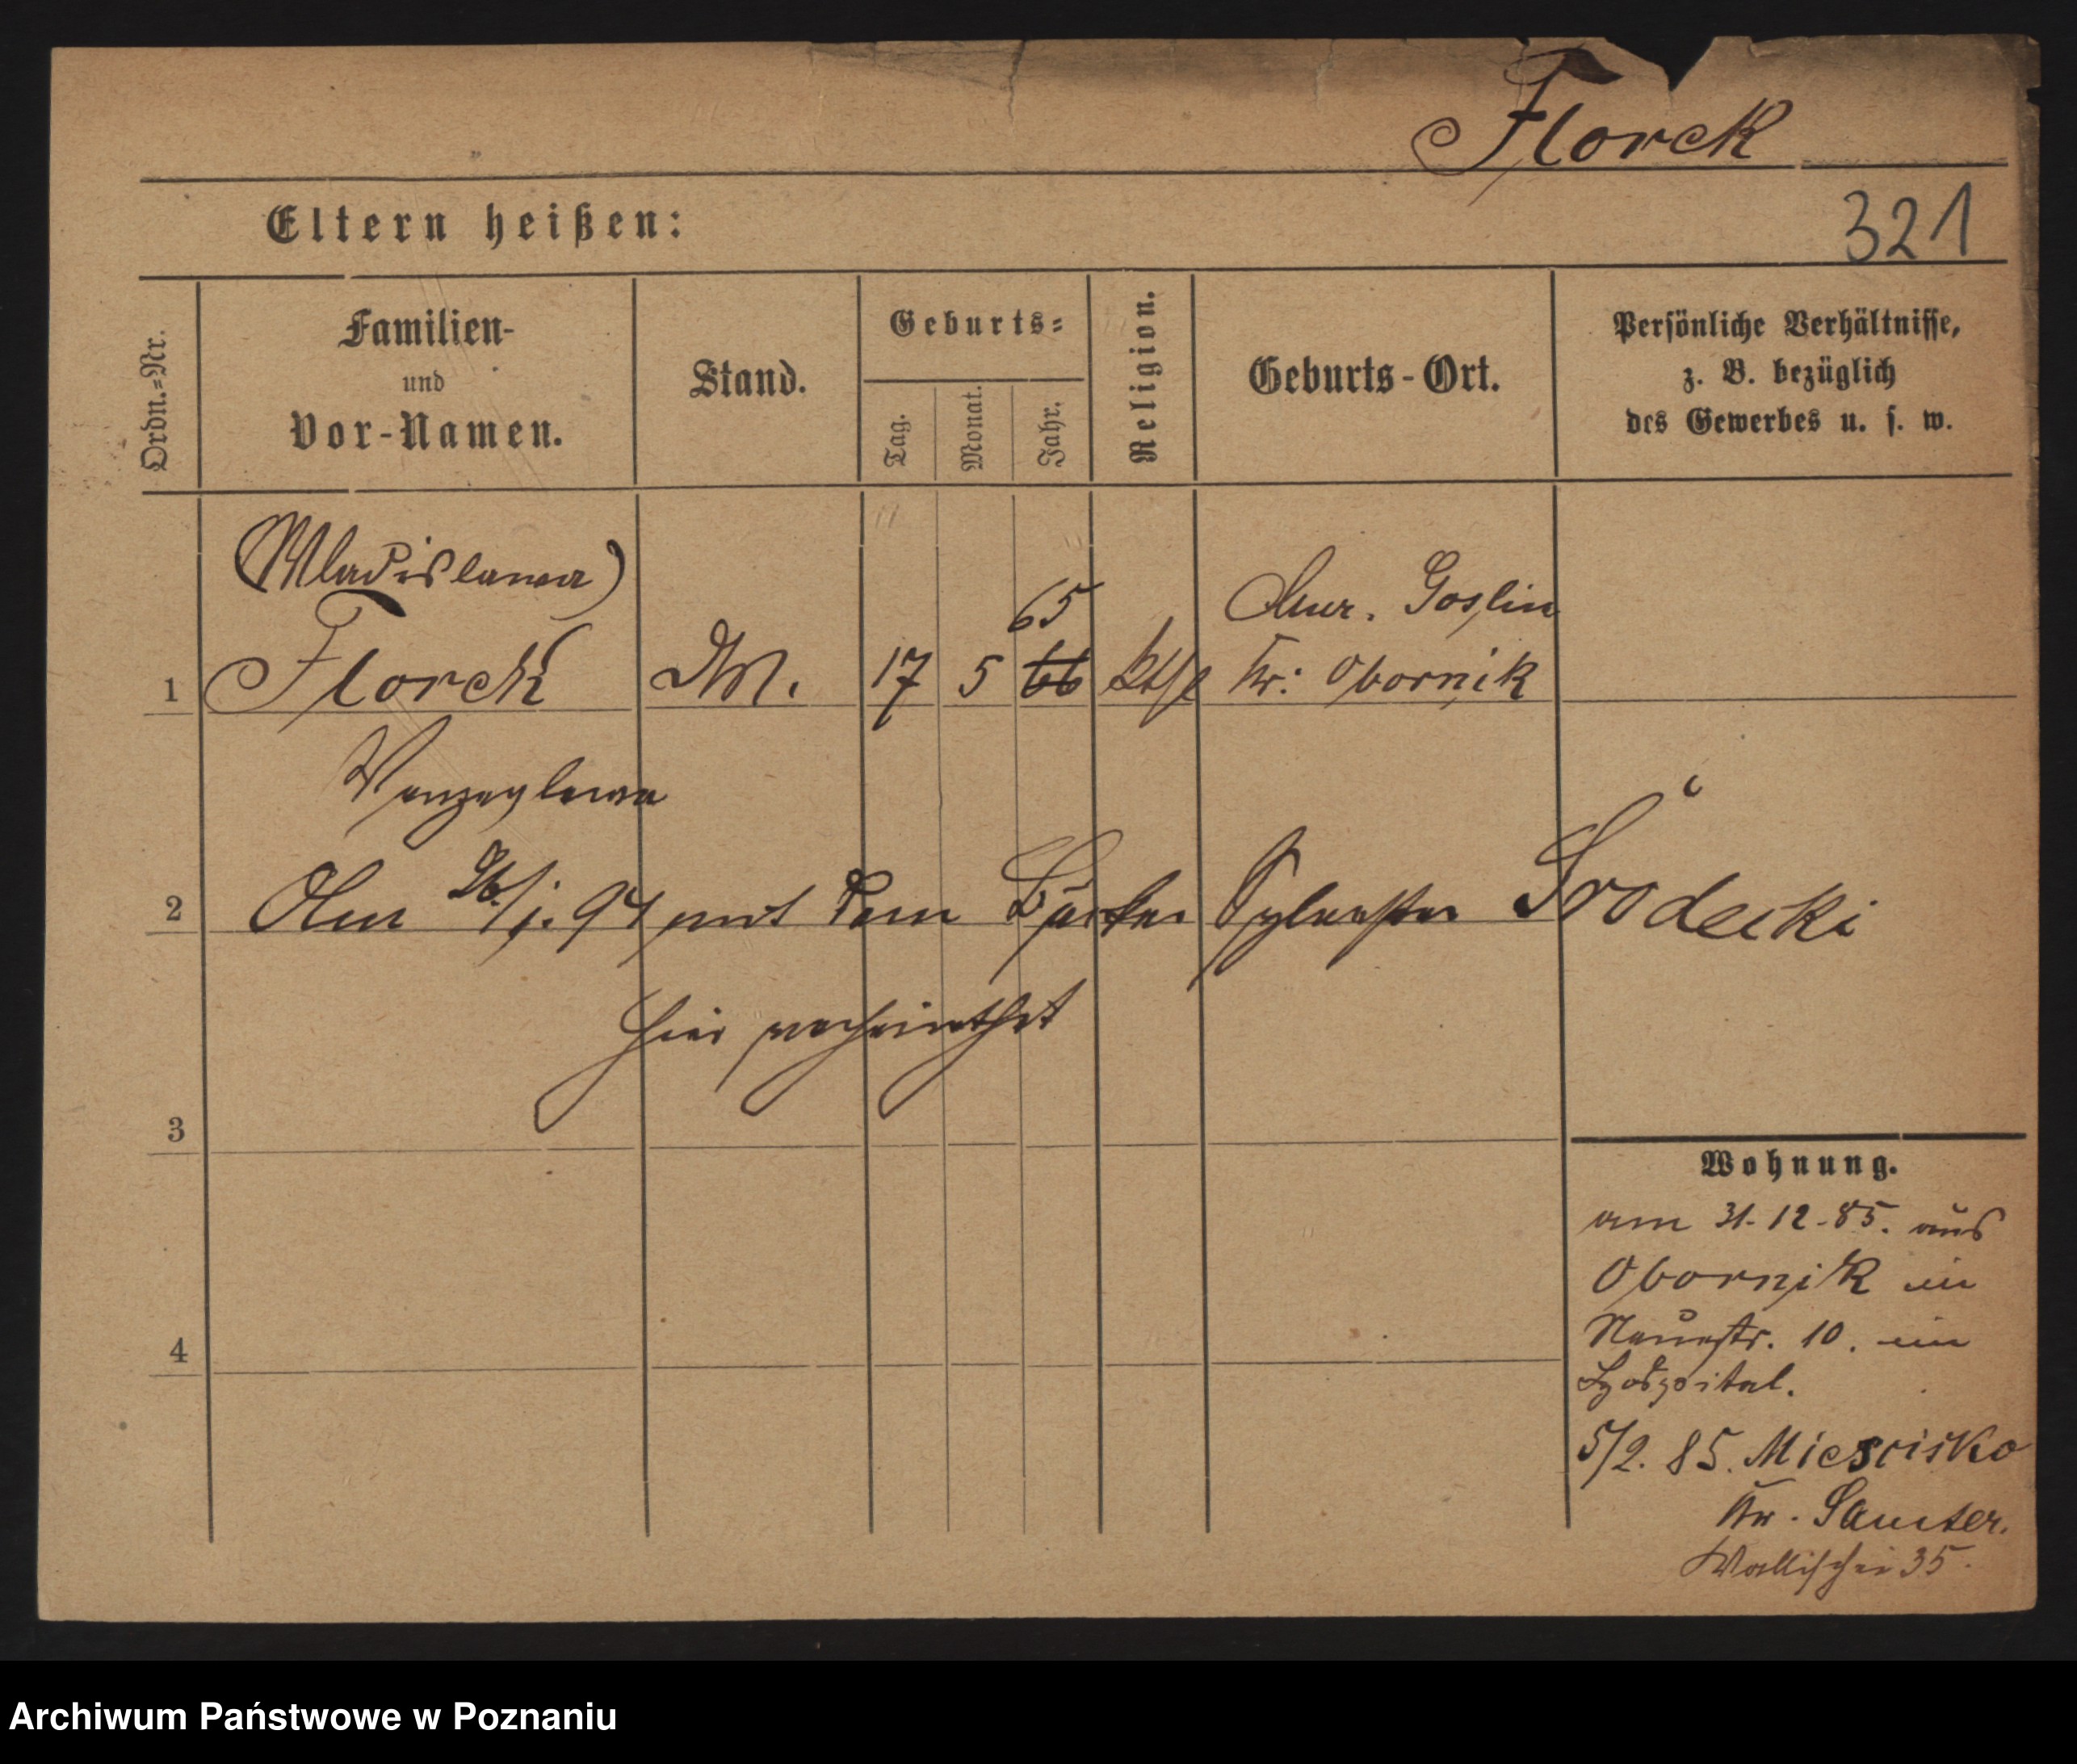 Florek
321
Eltern heißen:
Ordn.=Nr.
Familien-
und
Vor-Namen.
Stand.
Geburts=
Tag.
Monat.
Jahr.
Religion.
Geburts-Ort.
Persönliche Verhältnisse,
z. B. bezüglich
des Gewerbes u. s. w.
(Wladislawa)
65 Mur. Goslin
1 Florek 17 5 66 kth Kr: Obornik
2 Am 26/1. 94 mit dem Bäcker Sylvester Środecki
hier verheirathet
3
Wohnung.
am 31.12.85. aus
Obornik in
Neuestr. 10. im
Hospital.
4
5/2. 85. Miescisko
Kr. Samter.
Wallischei 35.
Archiwum Państwowe w Poznaniu